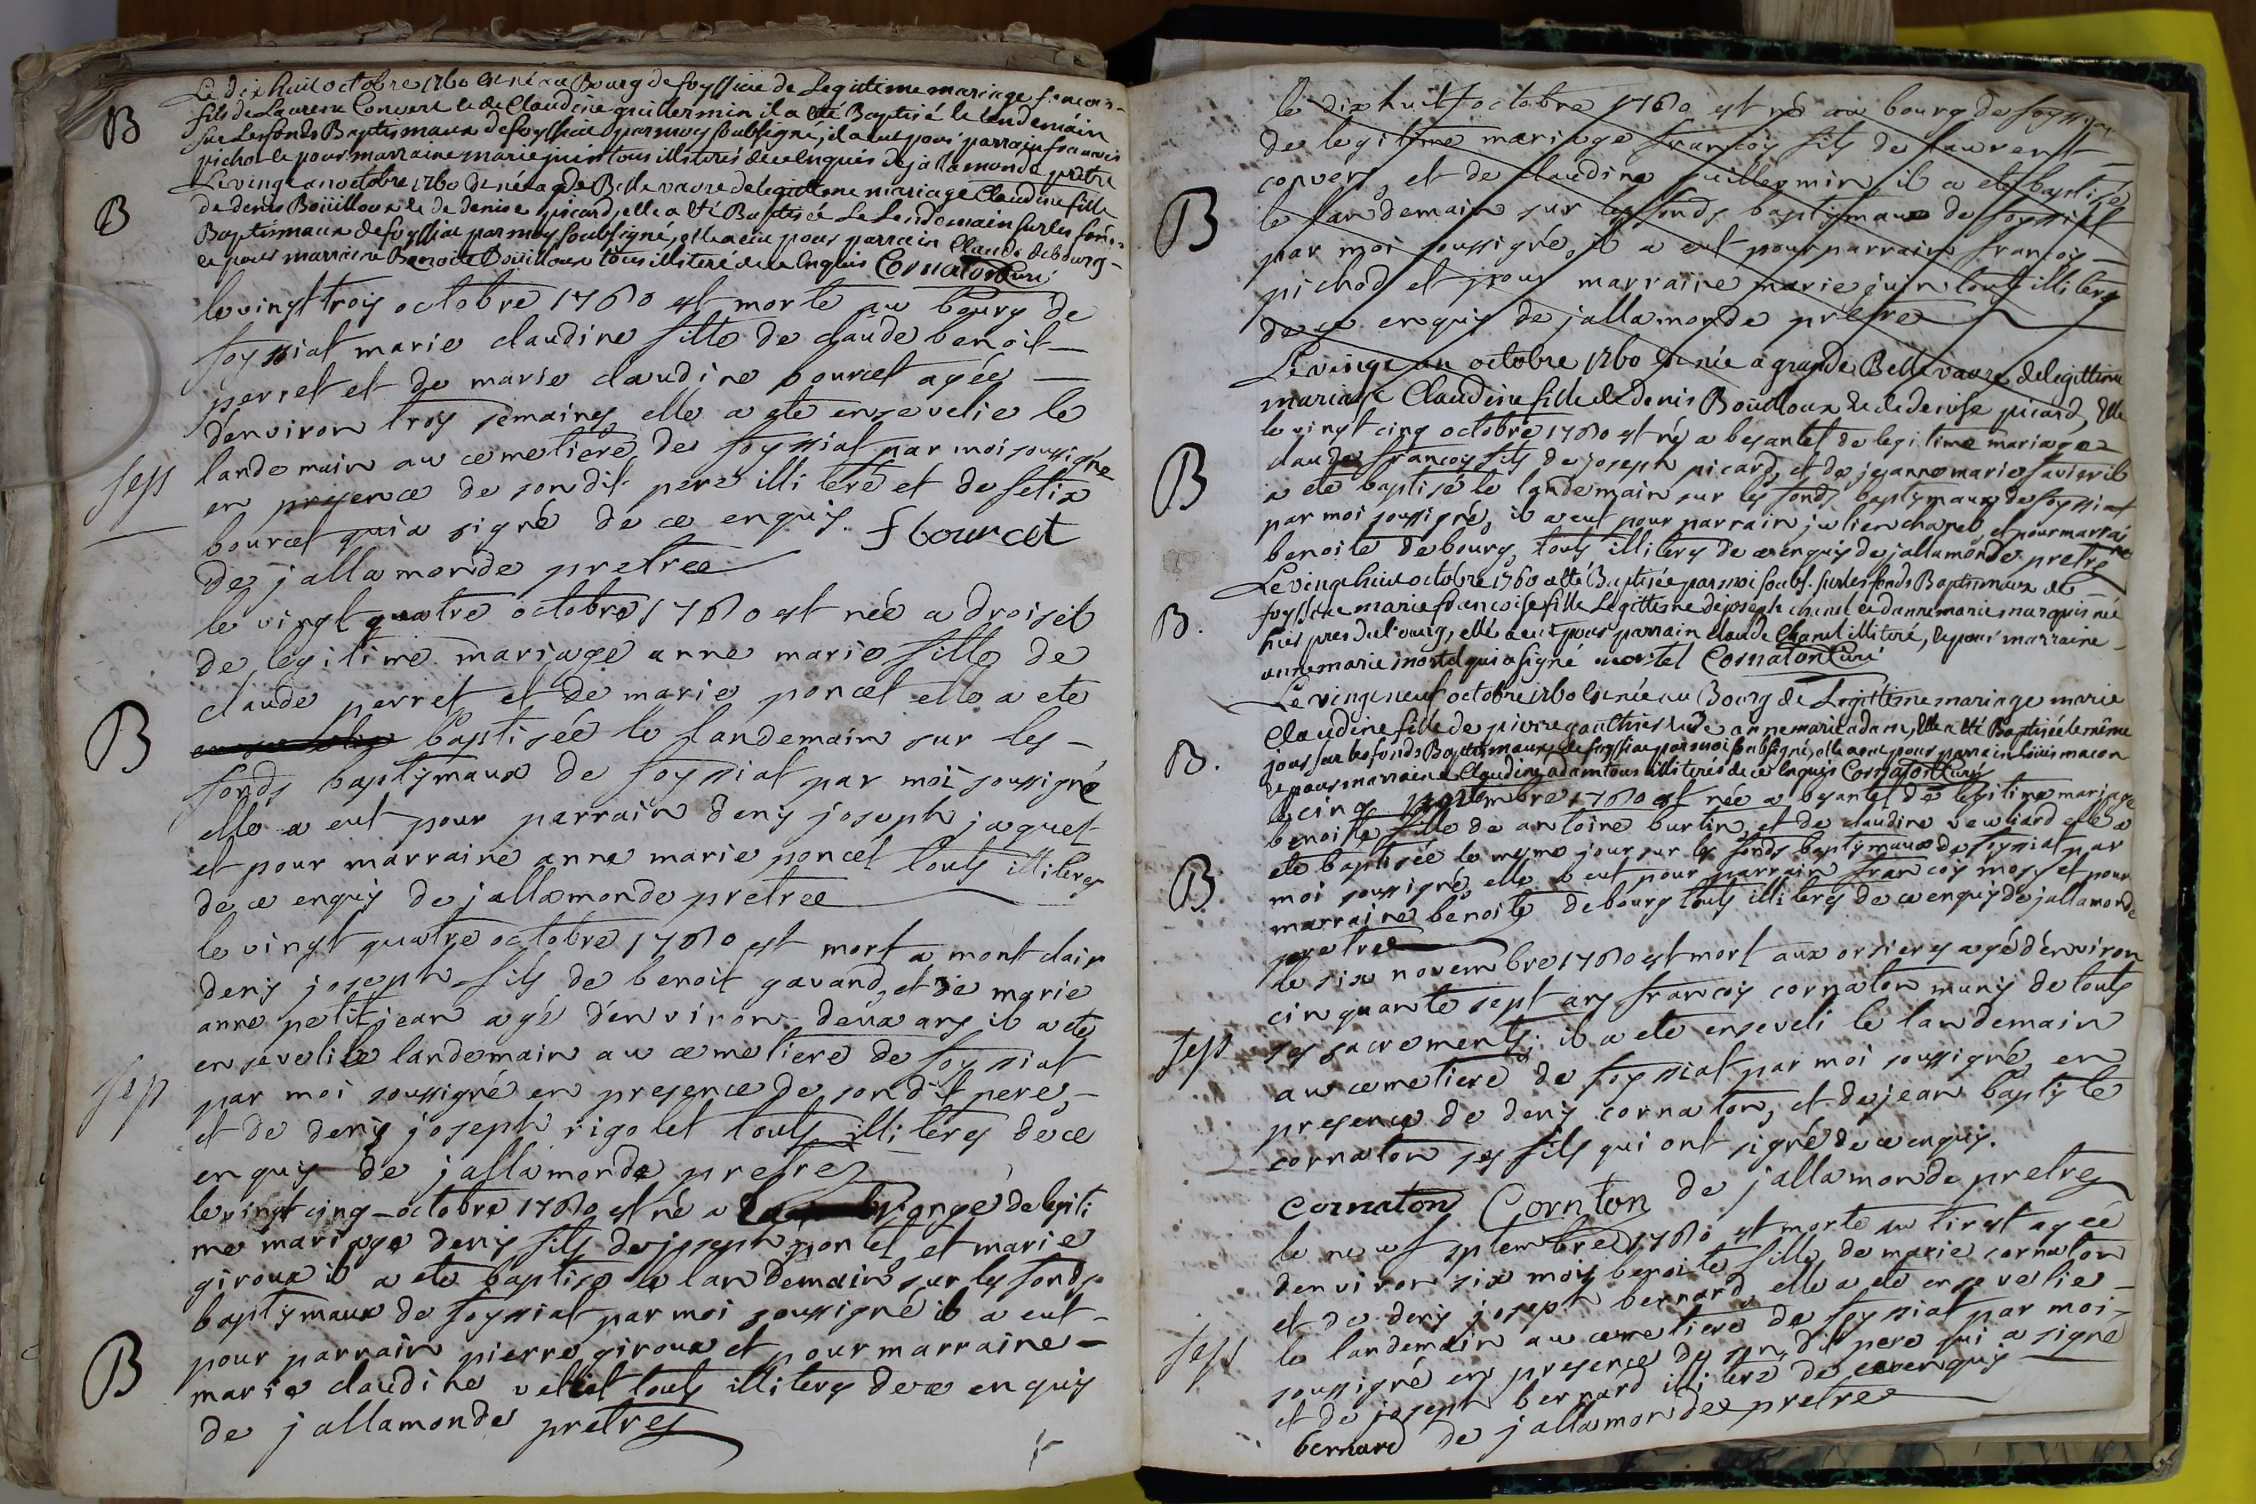 Le dix huit octobre 1760 est né au Bourg de foyssiat de Legittime mariage francois
fils de Laurent Convert et de Claudine guillermin il a été Baptisé le lendemain
sur les fonds Baptismaux de foyssiat par moy soubsigné, il a eut pour parrain francois
pichod et pour marraine marie juin tous illiterés de ce enquis dejallamonde prêtre
B
Le vingt un octobre 1760 est née a gde Bellevavre de legittime mariage Claudine fille
de denis Boüilloux et de denise picard, elle a été Baptisée Le Lendemain sur les fonds
Baptismaux de foyssiat par moy soubsigné, elle a eu pour parrain Claude debourg
et pour marraine Benoite Boüilloux tous illiteré de ce enquis Cornaton Curé
B
le vingt troy octobre 1760 est morte au bourg de
foyssiat marie claudine fille de claude benoit
perret et de marie claudine bourcet agée
d'environ troy semaines elle a ete ensevelie le
landemain au cemetiere de foyssiat par moi soussigné
en presence de son dit pere illiteré et de felix
bourcet qui a signé de ce enquis. f bourcet
de jallamonde pretre
sep
le vingt quatre octobre 1760 est née a droiset
de legitime mariage anne marie fille de
claude perret et de marie poncet elle a ete
baptisée le landemain sur les
fonds baptismaux de foyssiat par moi soussigné
elle a eut pour parrain denis joseph jaquet
et pour marraine anne marie poncet touts illiterés
de ce enquis de jallamonde pretre
B
le vingt quatre octobre 1760 est mort a mont clair
denis joseph fils de benoit gavand, et de marie
anne petitjean agé d'environ deux ans il a ete
enseveli le landemain au cemetiere de foyssiat
par moi soussigné en presence de son dit pere,
et de denis joseph rigolet touts illiterés de ce
enquis de jallamonde pretre
sep
le vingt cinq octobre 1760 est né a de legiti
me mariage denis fils de joseph poncet, et marie
giroux il a ete baptisé le landemain sur les fonds
baptismaux de foyssiat par moi soussigné il a eut
pour parrain pierre giroux et pour marraine
marie claudine touts illiterés de ce enquis
de jallamonde pretre
B
le dix huit octobre 1760 est né au bourg de foyssiat
de legitime mariage francois fils de laurent
convert, et de claudine guillermin il a ete baptisé
le landemain sur les fonds baptismaux de foyssiat
par moi soussigné, il a eut pour parrain francois
pichod et pour marraine marie juin touts illiterés
de ce enquis de jallamonde pretre
B
Le vingt un octobre 1760 est née a grande Bellevavre de legittime
mariage Claudine fille de denis Boüilloux et de denise picard, elle
le vingt cinq octobre 1760 est né a besantet de legitime mariage
claude francois fils de joseph picard, et de jeanne marie favier il
a ete baptisé le landemain sur les fonds baptismaux de foyssiat
par moi soussigné, il a eut pour parrain julien chanel et pour marrai
ne
benoite debourg, touts illiterés de ce enquis de jallamonde pretre
B
Le vingt huit octobre 1760 a été Baptisée par moi soubs. sur les fonds Baptismaux de
foyssiat marie francoise fille Legittime de joseph chanel et d'anne marie marquis née
hier pres du bourg, elle a eut pour parrain claude Chanel illiteré, et pour marraine
anne marie mortel qui a signé mortel Cornaton Curé
B.
Le vingt neuf octobre 1760 est née au Bourg de Legittime mariage marie
Claudine fille de pierre gauthier et de anne marie adam, elle a été Baptisée le même
jour sur les fonds Baptismaux de foyssiat par moi soubsigné, elle a eu pour parrain louis macon
et pour marraine Claudine adam tous illiterés de ce enquis Cornaton Curé
B.
le cinq novembre 1760 est née a besantet de legitime mariage
benoite fille de antoine burtin, et de claudine veuliard elle a
ete baptisée le meme jour sur les fonds baptismaux de foyssiat par
moi soussigné, elle a eut pour parrain francois et pour
marraine benoite debourg touts illiterés de ce enquis de jallamonde
pretre
B
le six novembre 1760 est mort aux orsieres agé d'environ
cinquante sept ans francois cornaton munis de touts
ses sacrements; il a ete enseveli le landemain
au cemetiere de foyssiat par moi soussigné, en
presence de denis cornaton, et de jean baptiste
cornaton ses fils qui ont signé de ce enquis.
cornaton Cornton de jallamonde pretre
sep
le neuf septembre 1760 est morte au tirat agée
d'environ six mois benoite fille de marie cornaton
et de denis joseph bernard, elle a ete ensevelie
le landemain au cemetiere de foyssiat par moi
soussigné en presence de son dit pere qui a signé
et de joseph bernard illiteré de ce enquis
bernard de jallamonde pretre
sep